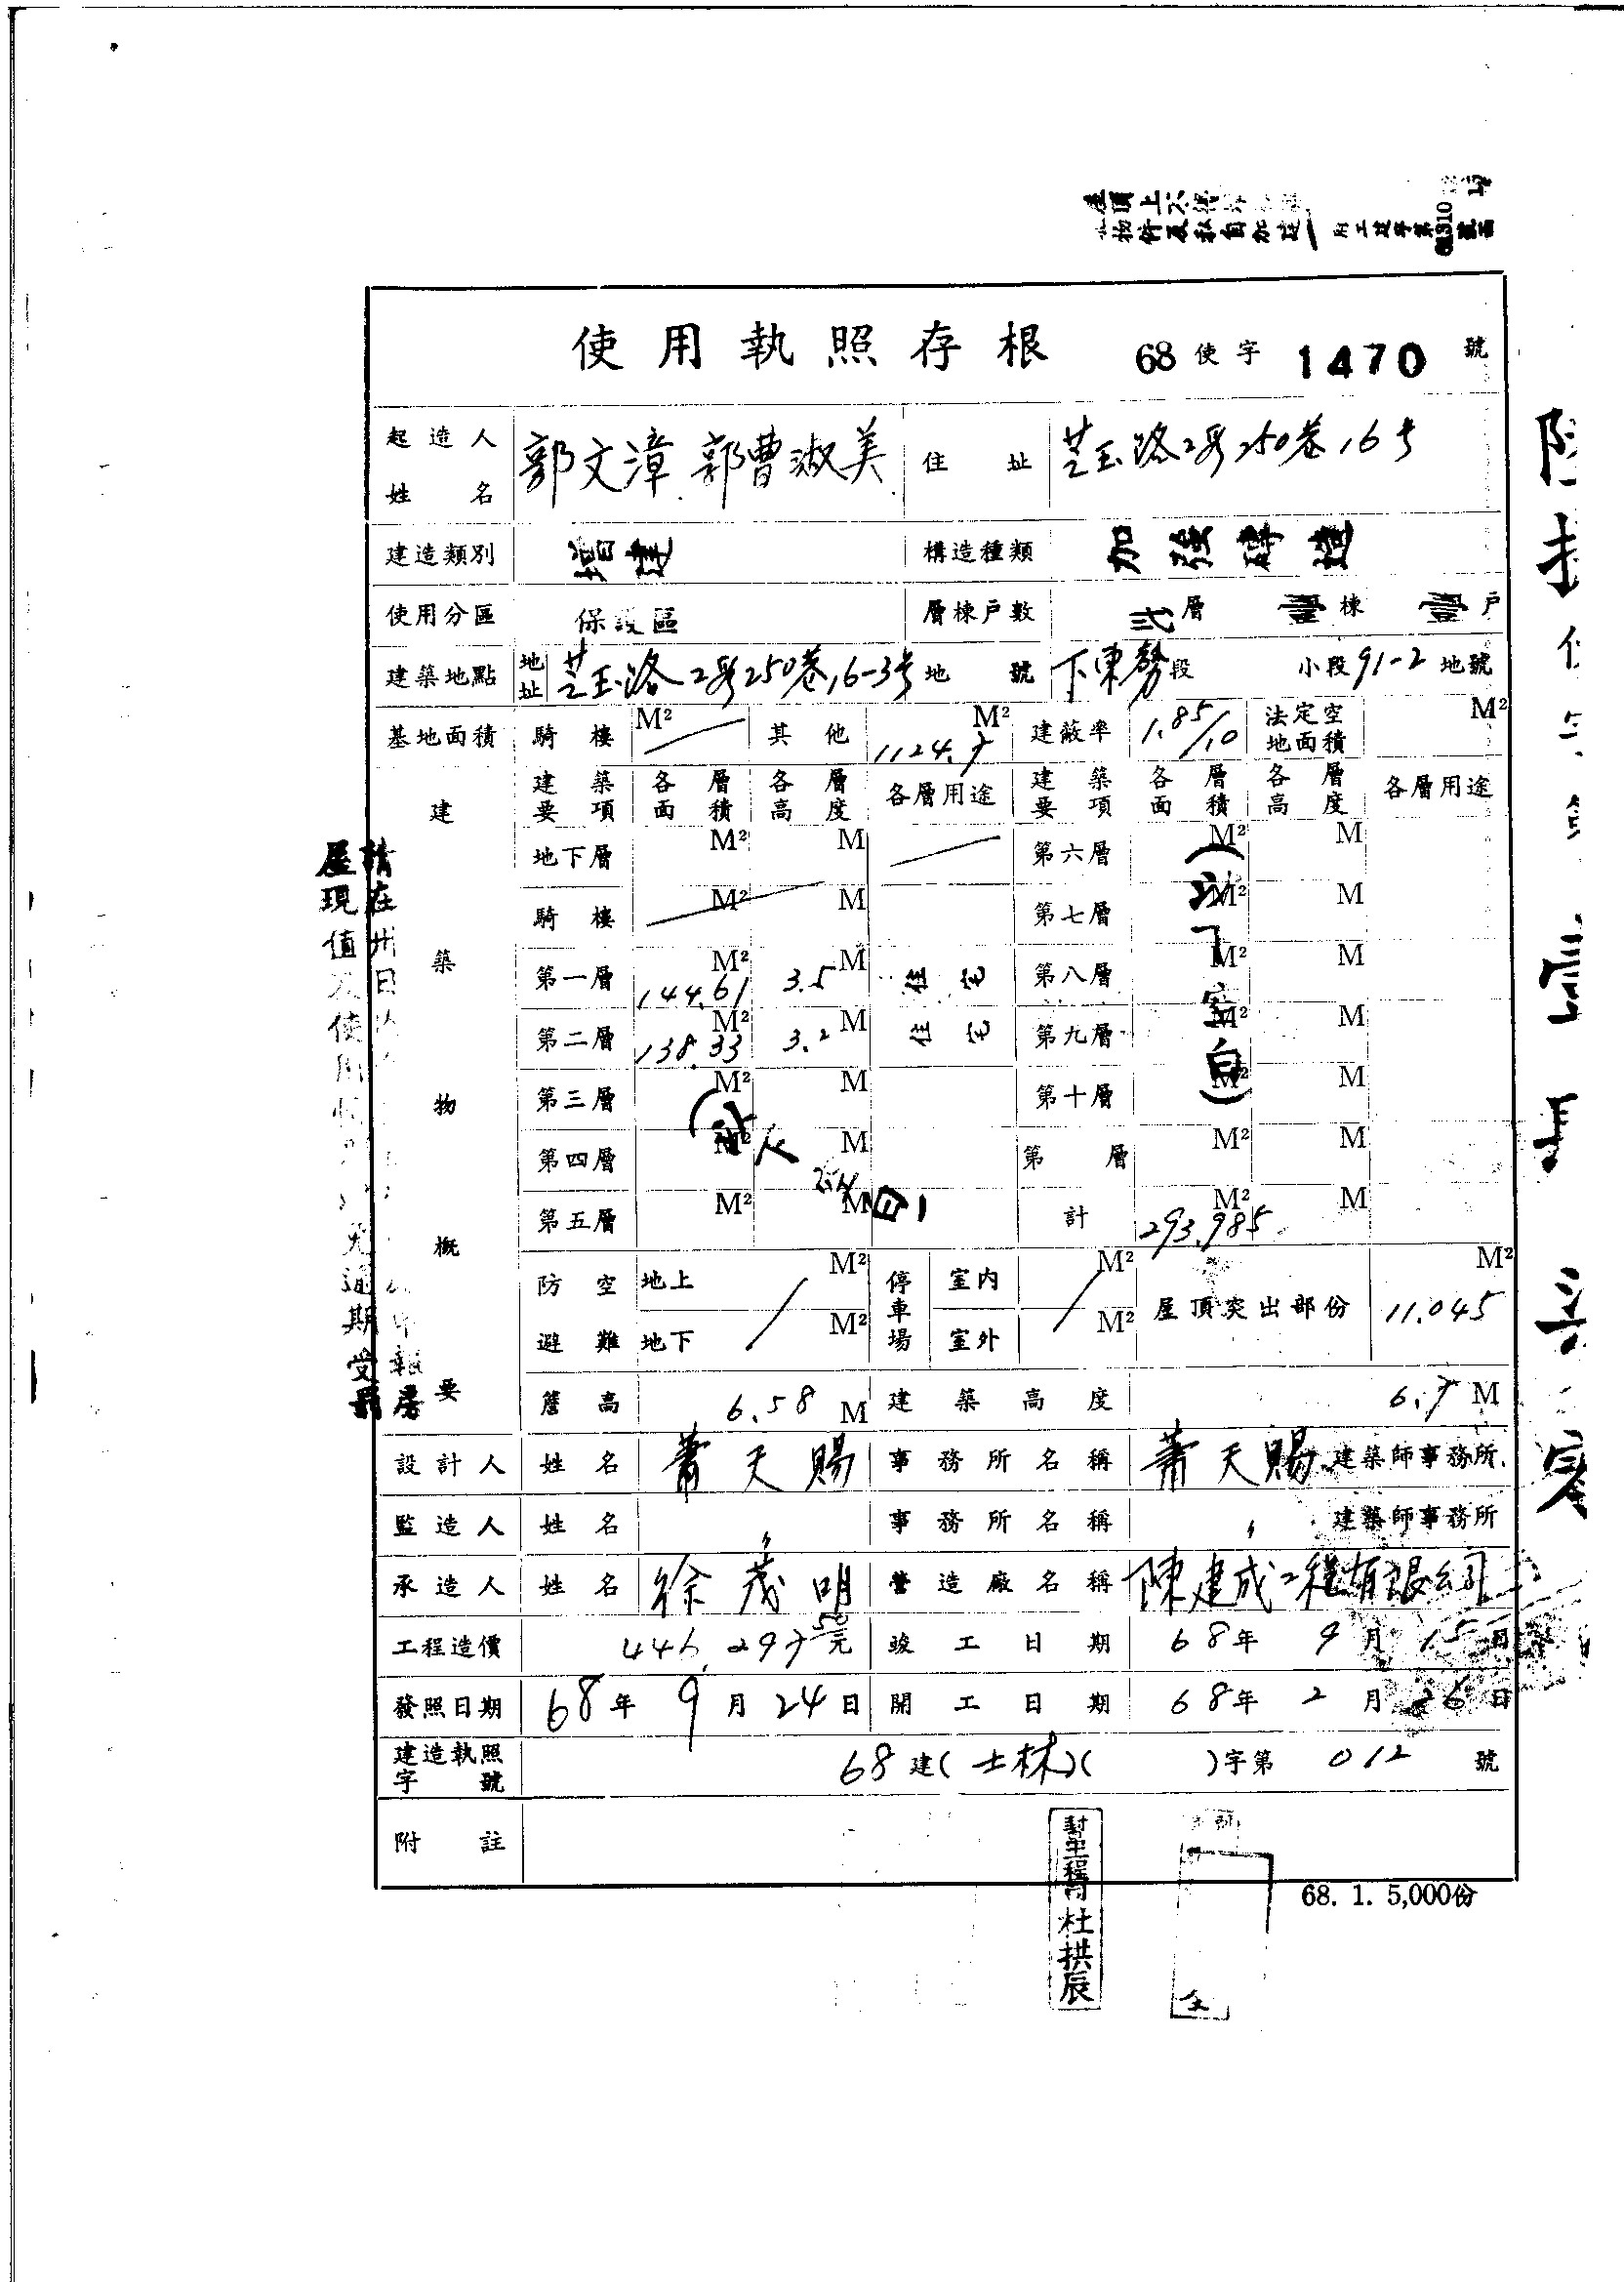 使用執照存根 68使字1470號
起造人姓名 郭文漳 郭曹淑美 住址 芝玉路2段250巷16号
建造類別 增建 構造種類 加強磚造
使用分區 保護區 層棟戶數 弍層 壹棟 壹戶
建築地點 地址 芝玉路2段250巷16-3号 地號 下東勢段 小段91-2地號
基地面積 騎樓 M² 其他 1124.7 M² 建蔽率 1.85/10 法定空地面積 M²
建築物概要
建築要項 各層面積 各層高度 各層用途 建築要項 各層面積 各層高度 各層用途
地下層 M² M 第六層 M² M
騎樓 M² M 第七層 M² M
第一層 144.61 M² 3.5 M 住宅 第八層 M² M
第二層 138.33 M² 3.2 M 住宅 第九層 M² M
第三層 M² M 第十層 M² M
第四層 M² M 第 層 M² M
第五層 M² M 計 293.985 M² M
防空避難 地上 M² 地下 M² 停車場 室內 M² 室外 M² 屋頂突出部份 11.045 M²
簷高 6.58 M 建築高度 6.7 M
設計人 姓名 蕭天賜 事務所名稱 蕭天賜建築師事務所
監造人 姓名 〃 事務所名稱 〃 建築師事務所
承造人 姓名 徐茂明 營造廠名稱 陳建成工程有限公司
工程造價 446,297.50元 竣工日期 68年9月15日
發照日期 68年9月24日 開工日期 68年2月26日
建造執照字號 68建(士林)( )字第012號
附註
68. 1. 5,000份
杜拱辰